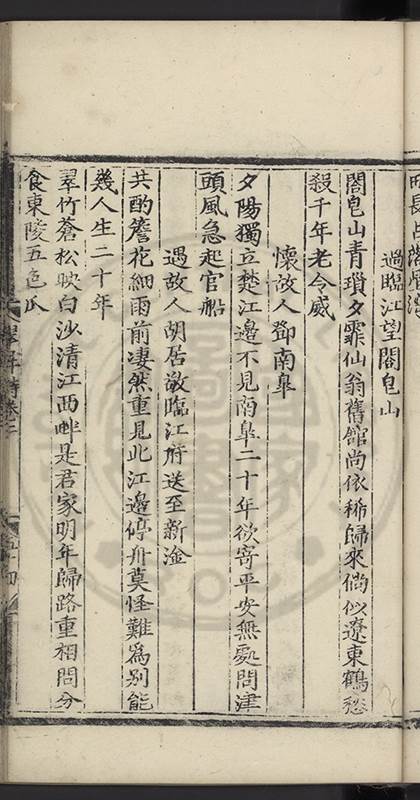 過臨江望閤皂山
閤皂山青瑣夕霏仙翁舊館尚依稀歸來倘似遼東鶴愁
殺千年老令威
懷故人鄧南皐
夕陽獨立楚江邊不見南皐二十年欲寄平安無處問津
頭風急起官船
遇故人胡居敬臨江府送至新淦
共酌簷花細雨前凄然重見此江邊停舟莫怪難為别能
幾人生二十年
翠竹蒼松映白沙清江西畔是君家明年歸路重相問分
食東陵五色瓜